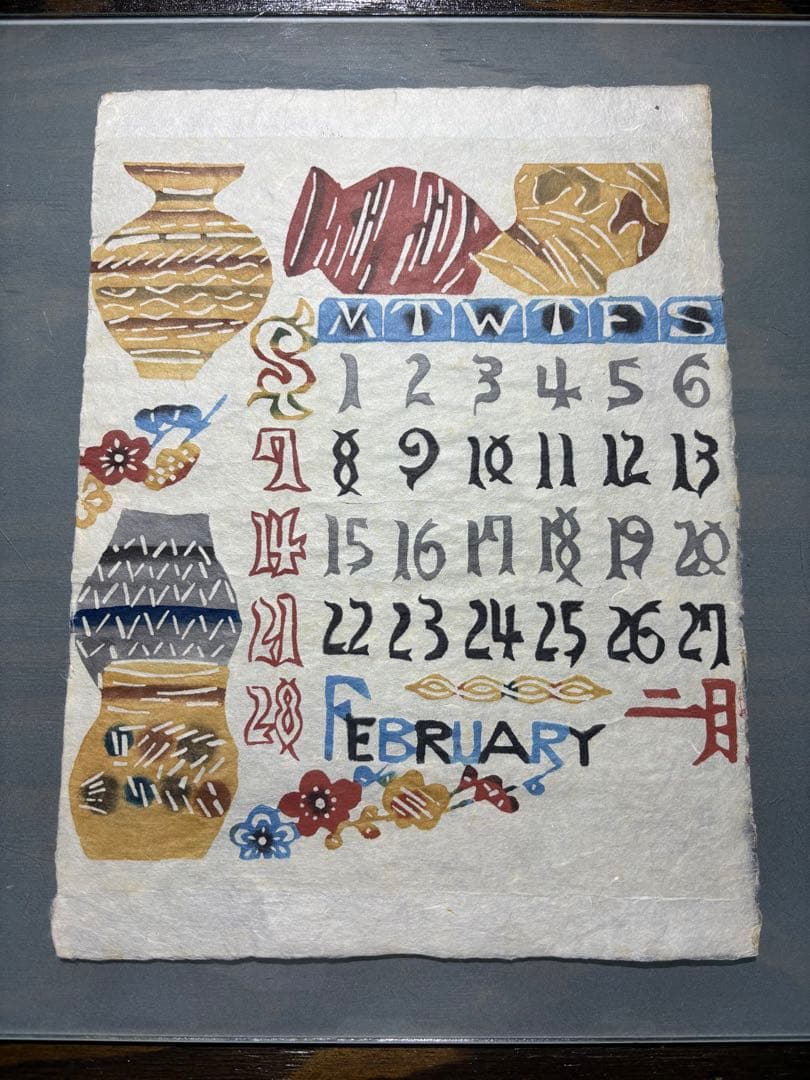 S M T W T F S
1 2 3 4 5 6
7 8 9 10 11 12 13
14 15 16 17 18 19 20
21 22 23 24 25 26 27
28
FEBRUARY 二月